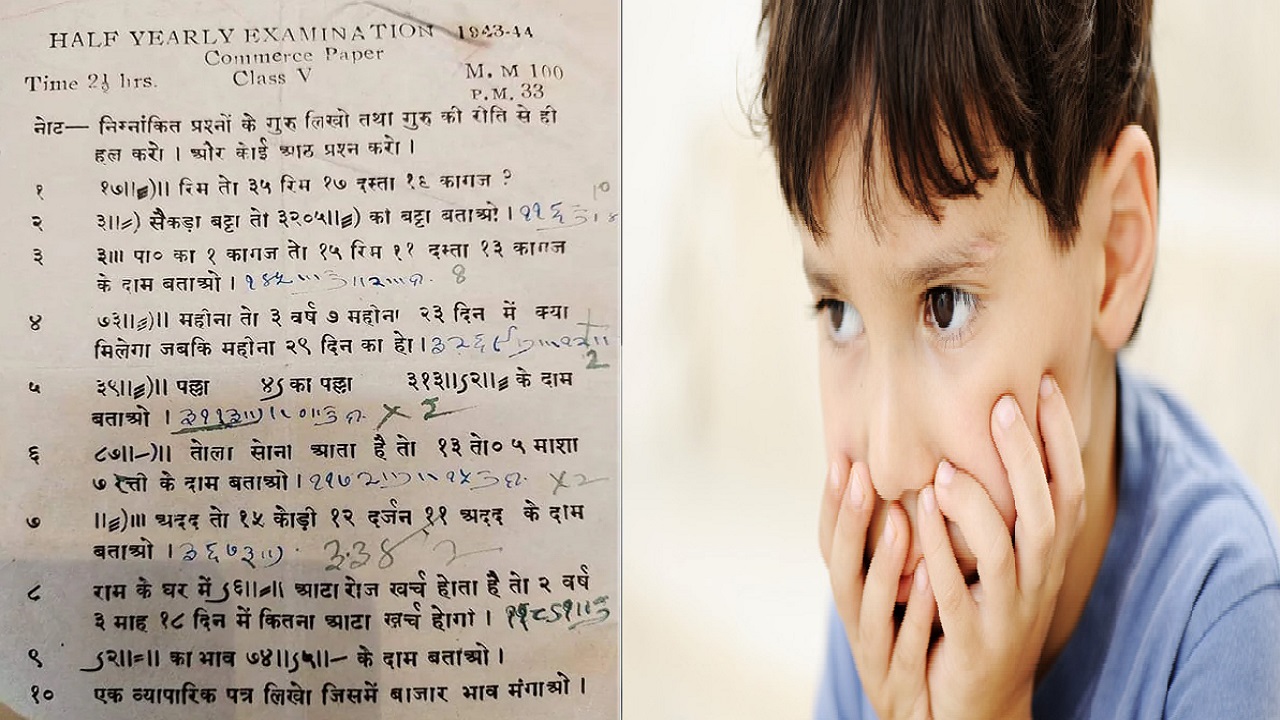 HALF YEARLY EXAMINATION 1943-44
Commerce Paper
Time 2½ hrs. Class V M. M 100
P.M. 33
नोट— निम्नांकित प्रश्नों के गुरु लिखो तथा गुरु की रीति से ही
हल करो । और कोई आठ प्रश्न करो ।
१ १७॥≡)॥ रिम तो ३५ रिम १७ दस्ता १६ कागज ?
10
२ ३॥=) सैकड़ा बट्टा तो ३२०५॥≡) का बट्टा बताओ ।
३ ३॥। पा० का १ कागज तो १५ रिम ११ दस्ता १३ कागज
के दाम बताओ । 8
४ ७३॥=)॥ महीना तो ३ वर्ष ७ महीना २३ दिन में क्या
मिलेगा जबकि महीना २९ दिन का हो ।
2
५ ३९॥=)॥ पल्ला ४ऽ का पल्ला ३१३॥ऽ२॥≡ के दाम
बताओ । × 2
६ ८७॥-)॥ तोला सोना आता है तो १३ तो० ५ माशा
७ रत्ती के दाम बताओ । ×2
७ ॥≡)॥। अदद तो १५ कोड़ी १२ दर्जन ११ अदद के दाम
बताओ ।
८ राम के घर में ऽ६॥=॥ आटा रोज खर्च होता है तो २ वर्ष
३ माह १८ दिन में कितना आटा खर्च होगा ।
९ ऽ२॥=॥ का भाव ७४॥ऽ५॥- के दाम बताओ ।
१० एक व्यापारिक पत्र लिखो जिसमें बाजार भाव मंगाओ ।